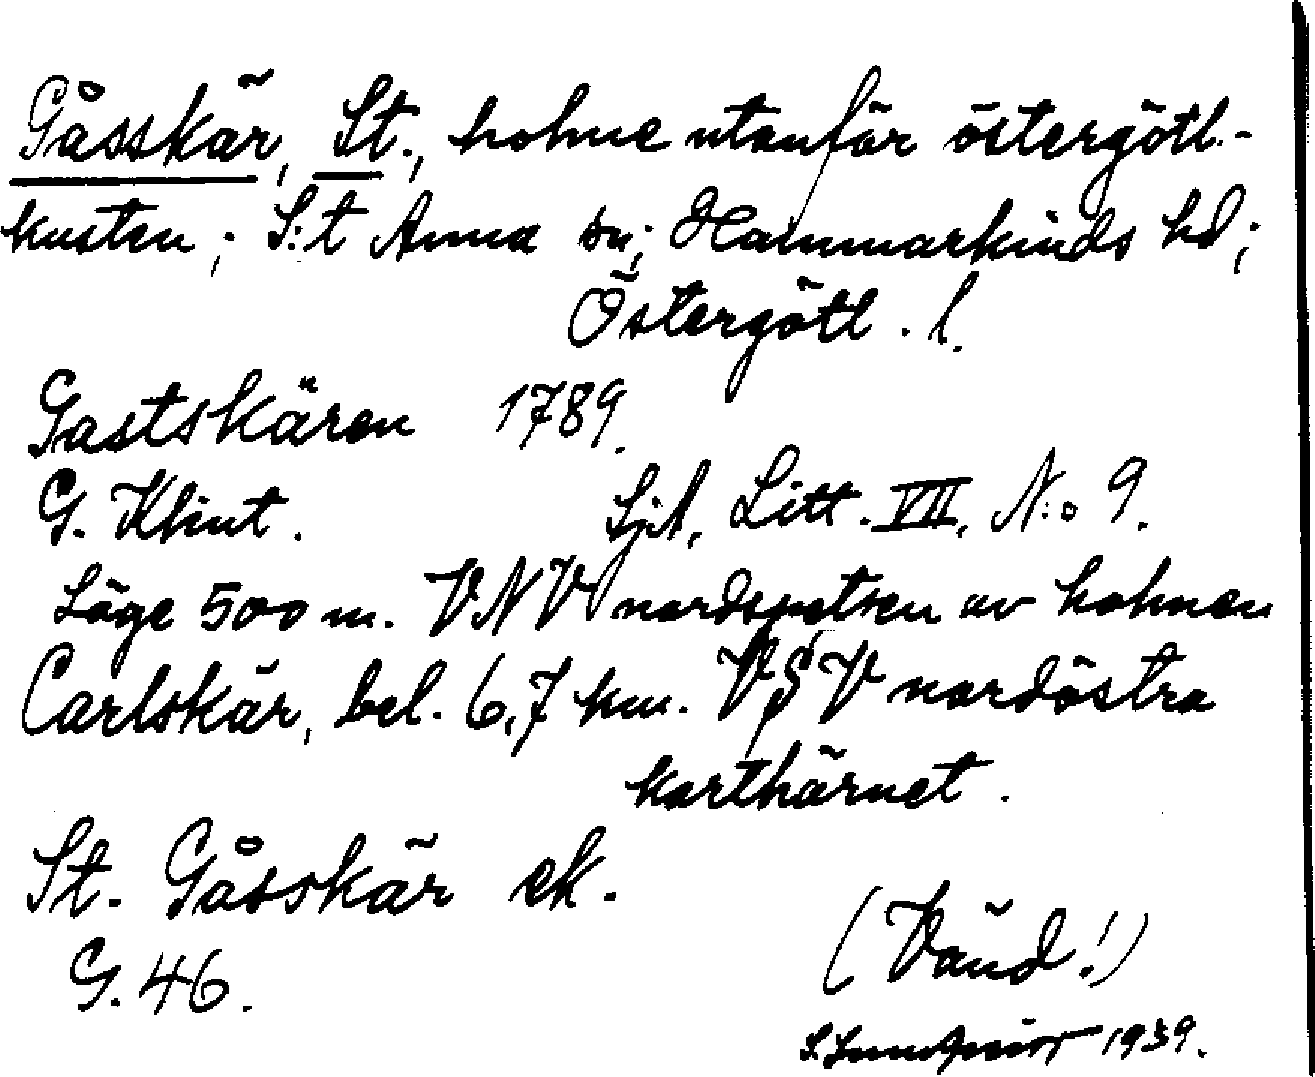 Gåsskär, St., holme utanför östergötl.-
kusten; S:t Anna sn; Hammarkinds hd;
Östergötl. l.
Gastskären 1789.
G. Klint. Sjk. Litt. VII. N:o 9.
Läge 500 m. VNV nordspetsen av holmen
Carlskär, bel. 6,7 km. VSV nordöstra
karthörnet.
St. Gåsskär ek.
G. 46.
(Vänd!)
1939.